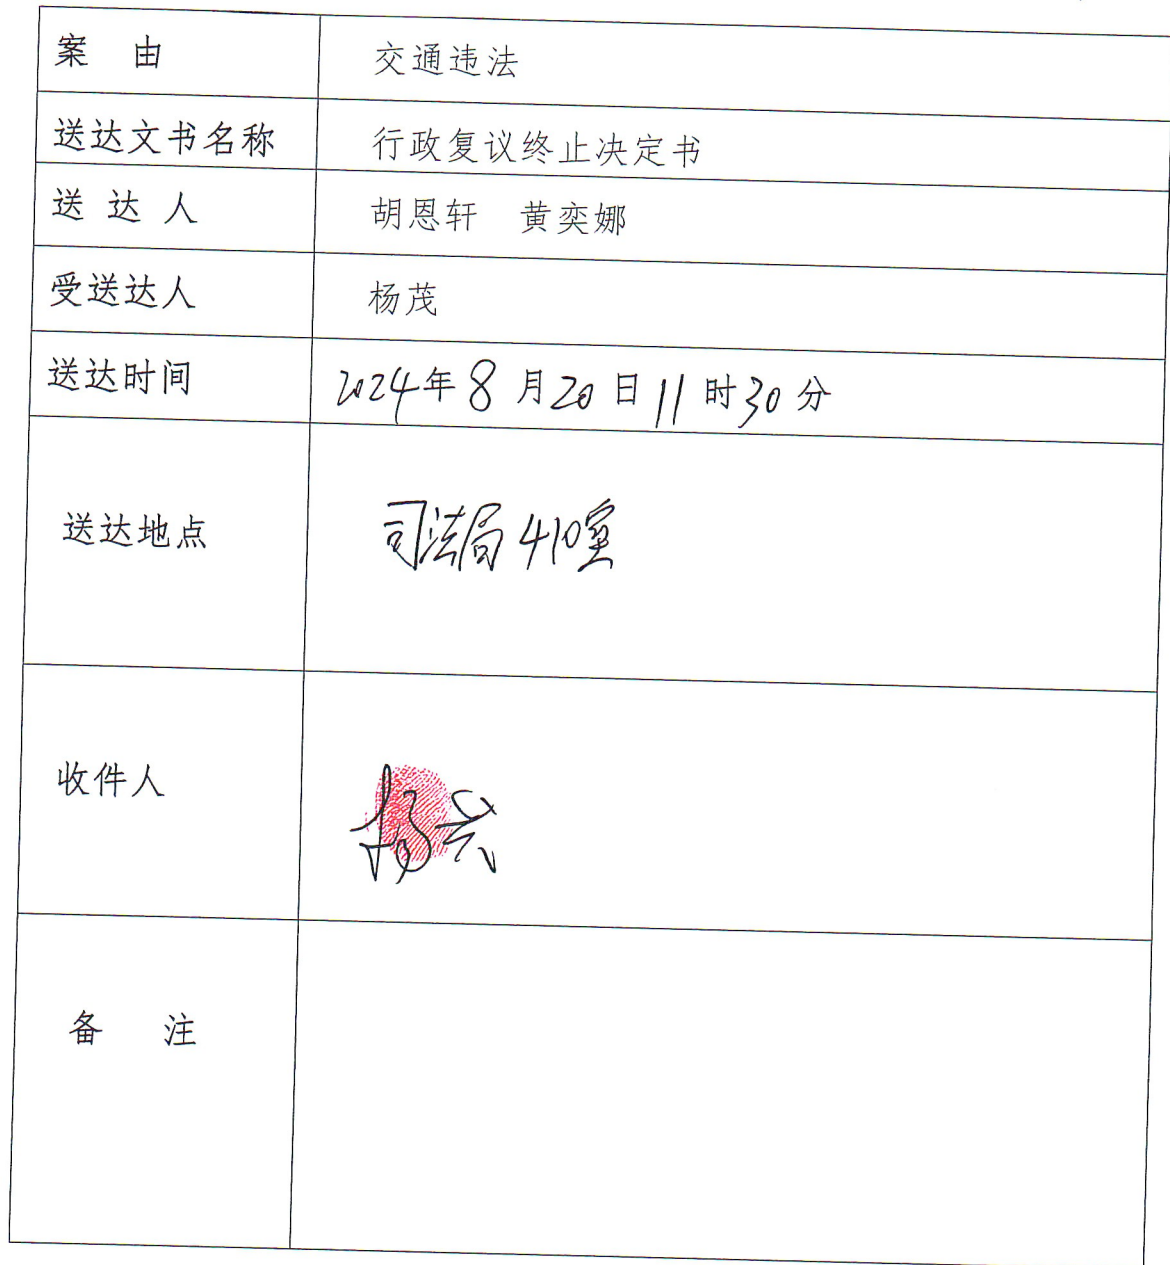 案 由 交通违法
送达文书名称 行政复议终止决定书
送 达 人 胡恩轩 黄奕娜
受送达人 杨茂
送达时间 2024年8月20日11时30分
送达地点 司法局410室
收件人 杨
备 注